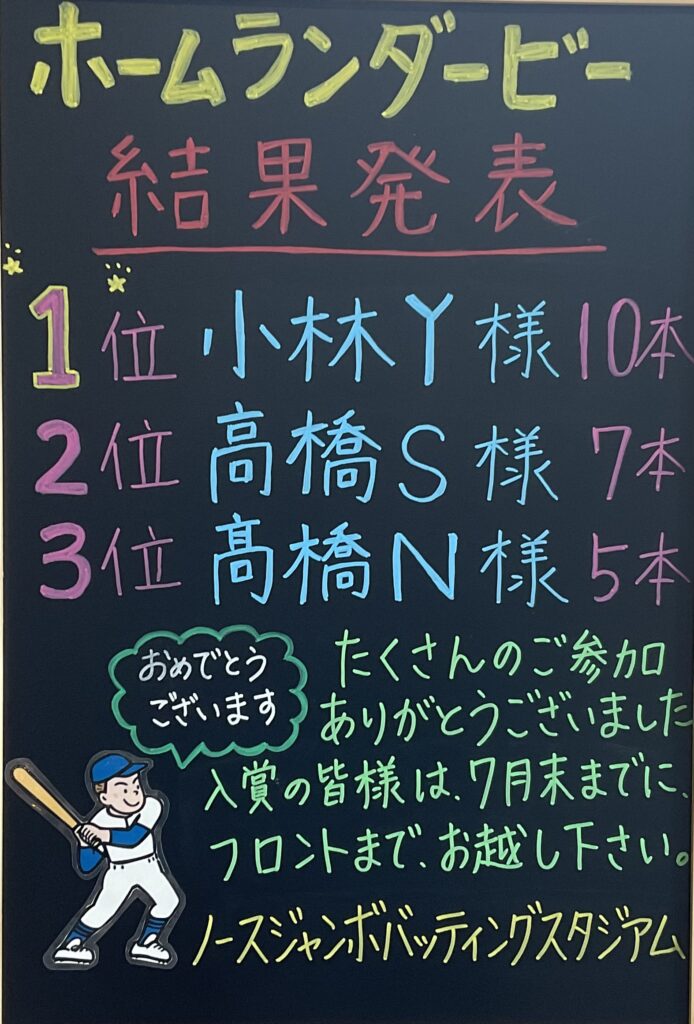 ホームランダービー
結果発表
1位 小林Y様 10本
2位 高橋S様 7本
3位 髙橋N様 5本
おめでとう
ございます
たくさんのご参加
ありがとうございました
入賞の皆様は、7月末までに、
フロントまで、お越し下さい。
ノースジャンボバッティングスタジアム